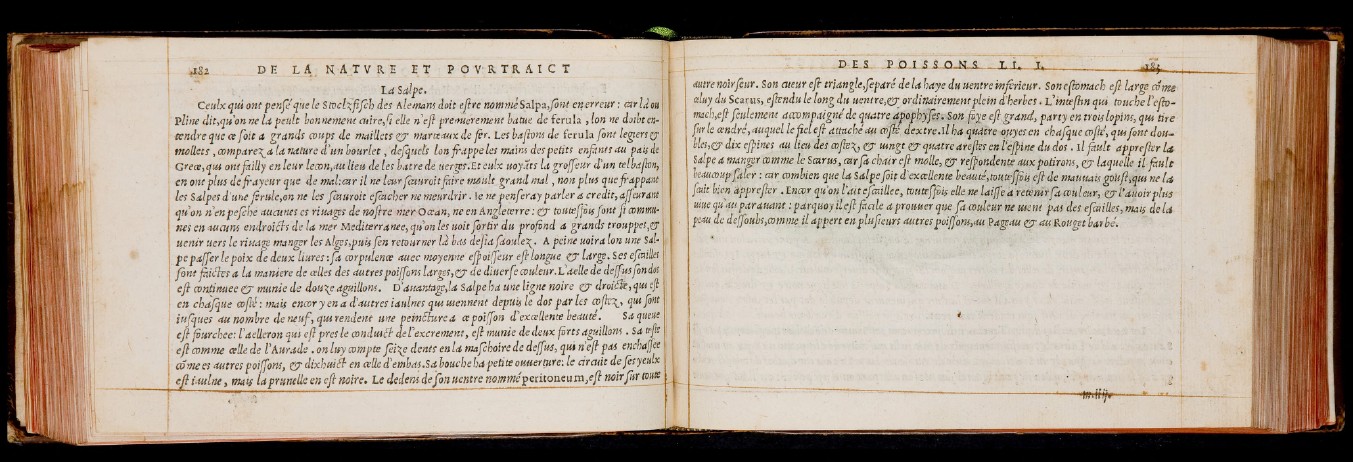 182 DE LA NATVRE ET POVRTRAICT
La Salpe.
Ceulx qui ont pensé que le Stockfisch des Alemans doit estre nommé Salpa, sont en erreur : car là ou
Pline dit, qu'on ne la peult bonnement cuire, si elle n'est premierement batue de ferula, lon ne doibt en-
tendre que ce soit a grands coups de maillets & marteaux de fer. Les bastons de ferula sont legiers &
mollets, comparez a la nature d'un bourlet, desquels lon frappe les mains des petits enfants au païs de
Grece, qui ont failly en leur lecon, au lieu de les batre de verges. Et ceulx uoyāts la grosseur d'un tel baston,
en ont plus de frayeur que de mal: car il ne leur sçauroit faire moult grand mal, non plus que frappant
les Salpes d'une ferule, on ne les sçauroit escacher ne meurdrir. Ie ne penseray parler a credit, asseurant
qu'on n'en pesche aucunes es riuages de nostre mer Ocean, ne en Angleterre : & toutesfois sont si commu-
nes en aucuns endroicts de la mer Mediterranee, qu'on les uoit sortir du profond a grands trouppes, &
uenir uers le riuage manger les Alges, puis s'en retourner là bas desia saoulez. A peine uoira lon une Sal-
pe passer le poix de deux liures : sa corpulence auec moyenne espoisseur est longue & large. Ses escailles
sont faictes a la maniere de celles des autres poissons larges, & de diuerse couleur. L'aelle de dessus son dos
est continuee & munie de douze aguillons. D'auantage, la Salpe ha une ligne noire & droicte, qui est
en chasque costé : mais encor y en a d'autres iaulnes qui uiennent depuis le dos par les costez, qui sont
iusques au nombre de neuf, qui rendent une peincture a ce poisson d'excellente beauté. Sa queue
est fourchee: l'aelleron qui est pres le conduict de l'excrement, est munie de deux forts aguillons. Sa teste
est comme celle de l'Aurade. on luy compte seize dents en la maschoire de dessus, qui n'est pas enchassee
cōme es autres poissons, & dixhuict en celle d'embas. Sa bouche ha petite ouuerture: le circuit de ses yeulx
est iaulne, mais la prunelle en est noire. Le dedens de son uentre nommé peritoneum, est noir sur toute
DES POISSONS LI. I. 183
autre noirseur. Son cueur est triangle, separé de la haye du uentre inferieur. Son estomach est large cōme
celuy du Scarus, estendu le long du uentre, & ordinairement plein d'herbes. L'intestin qui touche l'esto-
mach, est seulement accompaigné de quatre apophyses. Son foye est grand, party en trois lopins, qui tire
sur le cendré, auquel le fiel est attaché au costé dextre. Il ha quatre ouyes en chasque costé, qui sont dou-
bles, & dix espines au lieu des costez, & uingt & quatre arestes en l'espine du dos. Il fault apprester la
Salpe a manger comme le Scarus, car sa chair est molle, & respondente aux potirons, & laquelle il fault
beaucoup saler : car combien que la Salpe soit d'excellente beauté, toutesfois est de mauuais goust, qui ne la
sçait bien apprester. Encor qu'on l'ait escaillee, toutesfois elle ne laisse a retenir sa couleur, & l'auoir plus
uiue qu'au parauant : parquoy il est facile a prouuer que sa couleur ne uient pas des escailles, mais de la
peau de dessoubs, comme il appert en plusieurs autres poissons, au Pageau & au Rouget barbé.
m.iiij.